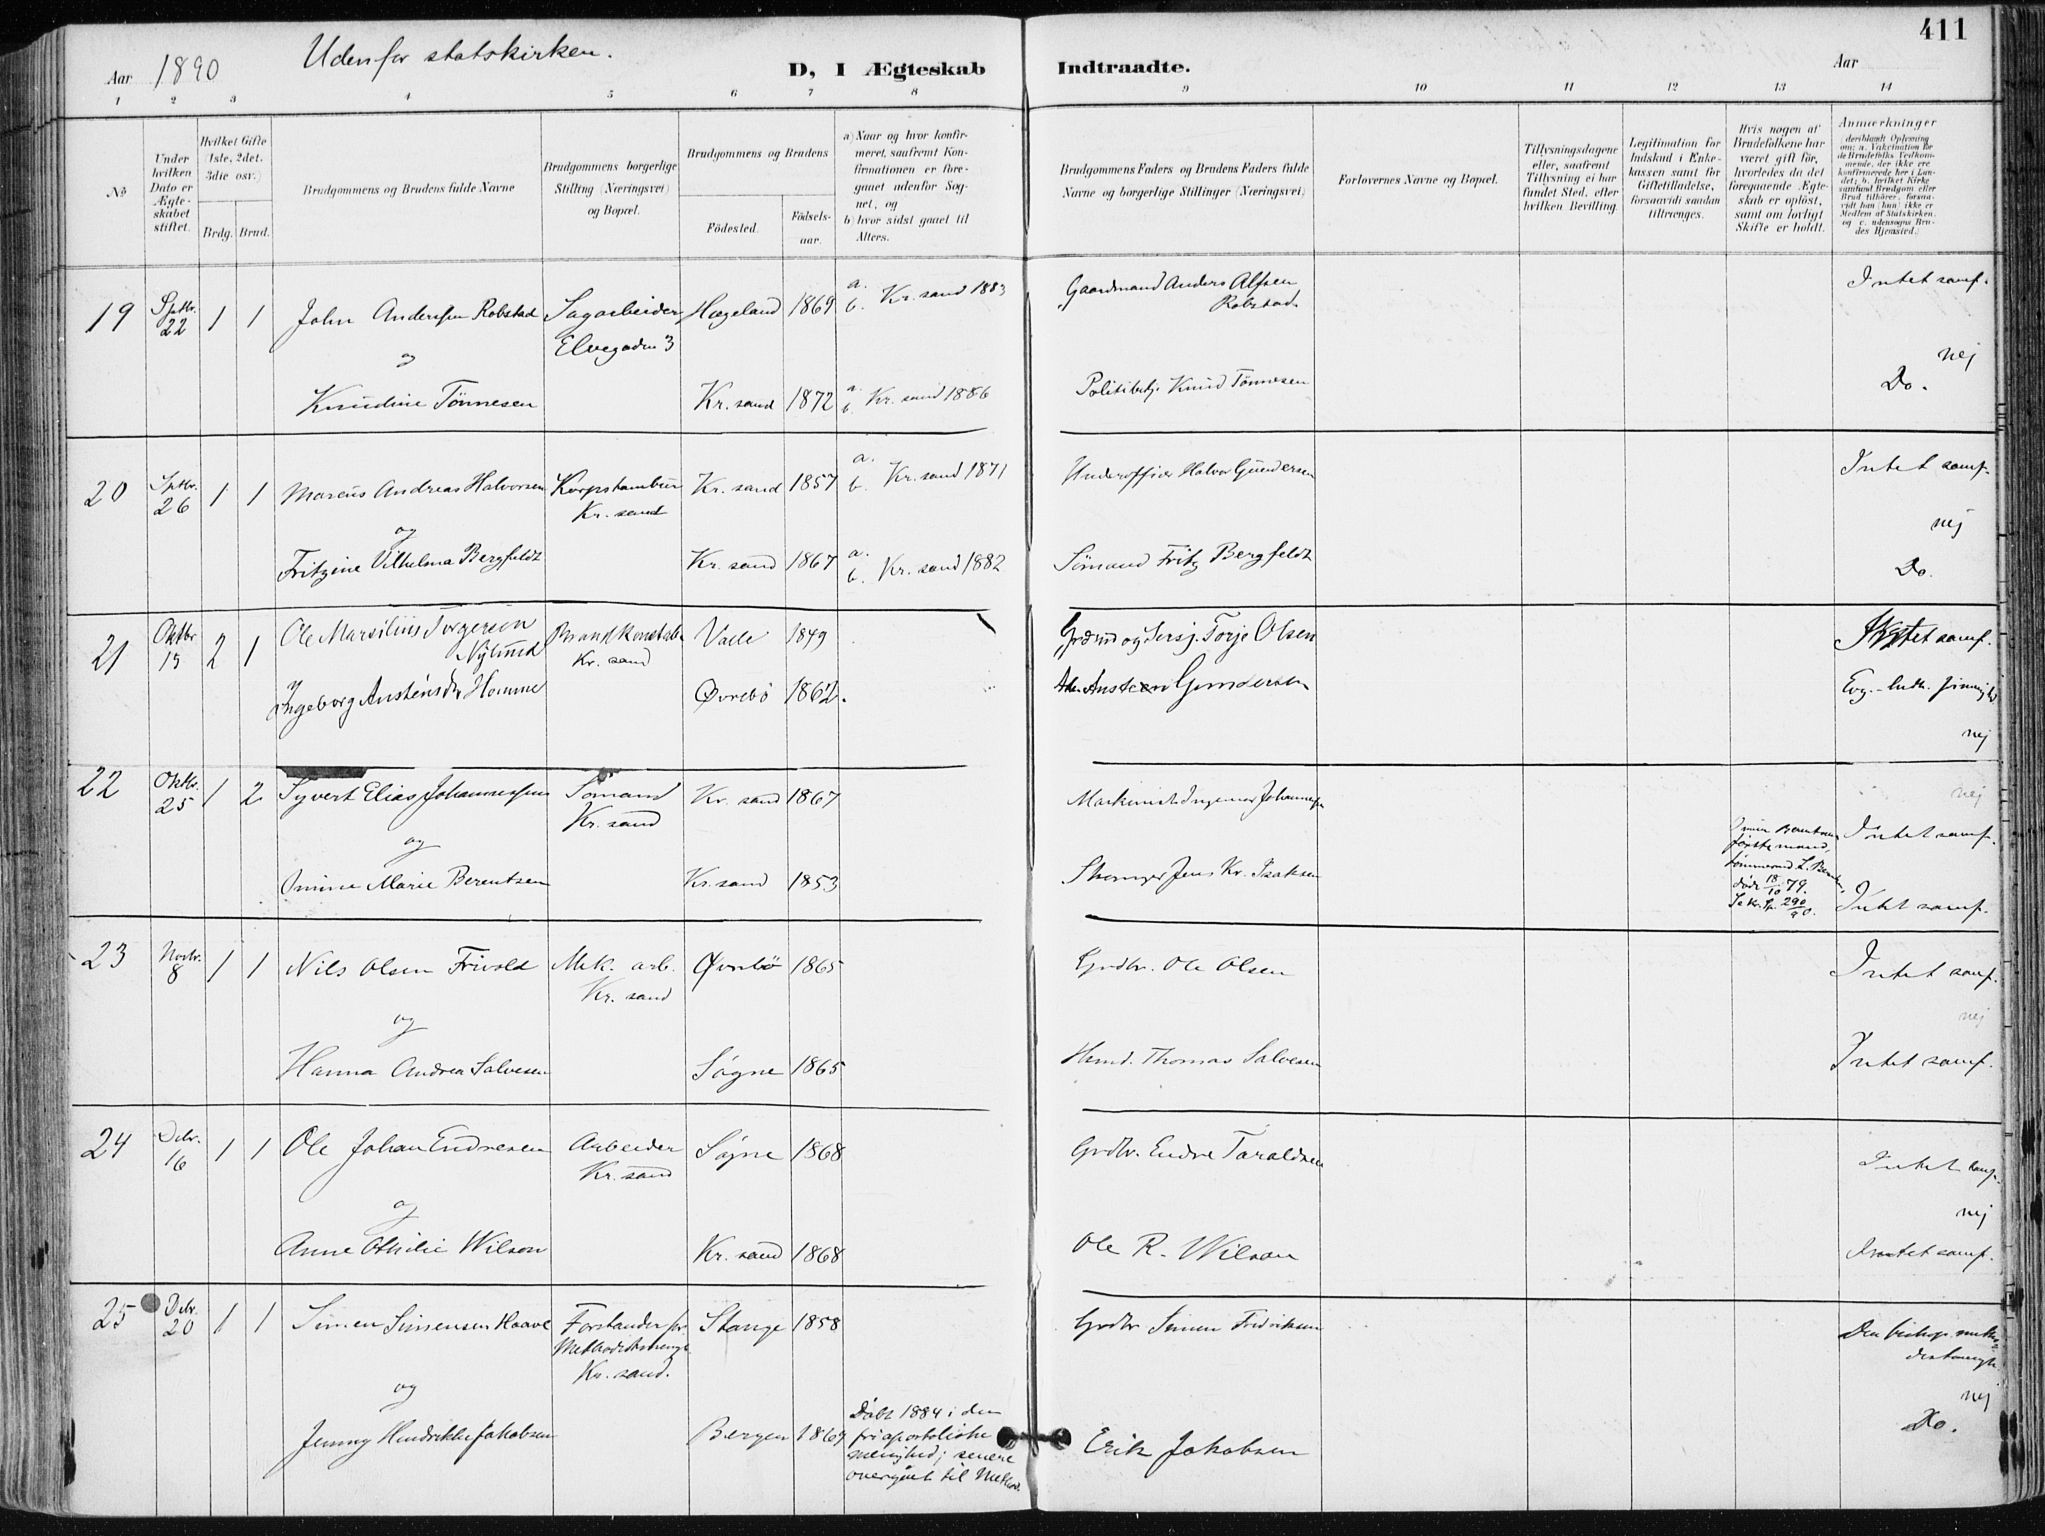 411
Aar 1890
Udenfor statskirken.
D, I Ægteskab
Indtraadte.
Aar
1 2 3 4 5 6 7 8 9 10 11 12 13 14
No
Under hvilken Dato er Ægteskabet stiftet.
Hvilket Gifte (1ste, 2det, 3die osv.)
Brdg. Brud.
Brudgommens og Brudens fulde Navne
Brudgommens borgerlige Stilling (Næringsvei) og Bopæl.
Brudgommens og Brudens
Födested.
Födsels-aar.
a) Naar og hvor konfir-
meret, saafremt Kon-
firmationen er fore-
gaaet udenfor Sog-
net, og
b) hvor sidst gaaet til
Alters.
Brudgommens Faders og Brudens Faders fulde
Navne og borgerlige Stillinger (Næringsvei)
Forlovernes Navne og Bopæl.
Tillysningsdagene
eller, saafremt
Tillysning ei har
fundet Sted, efter
hvilken Bevilling.
Legitimation for
Indskud i Enke-
kassen samt for
Giftetilladelse,
forsaavidt saadan
tiltrænges.
Hvis nogen af
Brudefolkene har
været gift för,
hvorledes da det
foregaaende Ægte-
skab er oplöst,
samt om lovligt
Skifte er holdt.
Anmærkninger
(deriblandt Oplysning
om: a. Vakcination for
de Brudefolks Vedkom-
mende, der ikke ere
konfirmerede her i Lan-
det; b. hvilket Kirke
samfund Brudgom eller
Brud tilhörer, forsaa-
vidt han (hun) ikke er
Medlem af Statskirken,
og c. udensogns Bru-
des Hjemsted.)
19 Sptbr. 22 1 1 John Andersen Robstad Sagarbeider Hægeland 1869 a. b. Kr. sand 1883 Gaardmand Anders Alfsen Robstad. Intet samf.
og Elvegaden 3 nej
Knudine Tönnesen Kr. sand 1872 a. b. Kr. sand 1886 Politibetj. Knud Tönnesen Do.
20 Sptbr. 26 1 1 Marcus Andreas Halvorsen Korpstambur Kr. sand 1857 a. b. Kr. sand 1871 Underofficer Halvor Gundersen Intet samf.
og Kr. sand nej
Fritzine Vilhelma Bergfeldt Kr. sand 1867 a. b. Kr. sand 1882 Sömand Fritz Bergfeldt Do.
21 Oktbr 15 2 1 Ole Marsilius Torgersen Nylund Brandkonstab. Kr. sand Valle 1849 Torje Olsen samf.
og Ingeborg Austensdtr. Homme Øvrebö 1862. Austen Gundersen Evg.-luth.
nej
22 Oktbr. 25 1 2 Syvert Elias Johannessen Sömand Kr. sand 1867 Maskinist Ingemar Johannesen nej
og Kr. sand Intet samf.
Omine Marie Berentsen Kr. sand 1853 Jens Kr. Isaksen förste mand, döde 18/10 79. 290/90. Intet samf.
23 Novbr. 8 1 1 Nils Olsen Frivold Mek. arb. Øvrebö 1865 Grdbr. Ole Olsen Intet samf.
og Kr. sand nej
Hanna Andrea Salvesen Søgne 1865 Hsmd. Thomas Salvesen Intet samf.
24 Debr. 16 1 1 Ole Johan Endresen Arbeider Søgne 1868 Grdbr. Endre Taraldsen Intet samf.
og Kr. sand nej
Anne Othilie Wilson Kr. sand 1868 Ole R. Wilson Intet samf.
25 Debr. 20 1 1 Simen Simensen Haave Forstander for Stange 1858 Grdbr Simen Fridriksen Den biskop. metho-
Methodistmengh. Kr. sand.
og nej
Jenny Hendrikke Jakobsen Bergen 1869 Erik Jakobsen Do.
Döbt 1884 i den
friapostoliske
menighed; senere
overgået til Method.